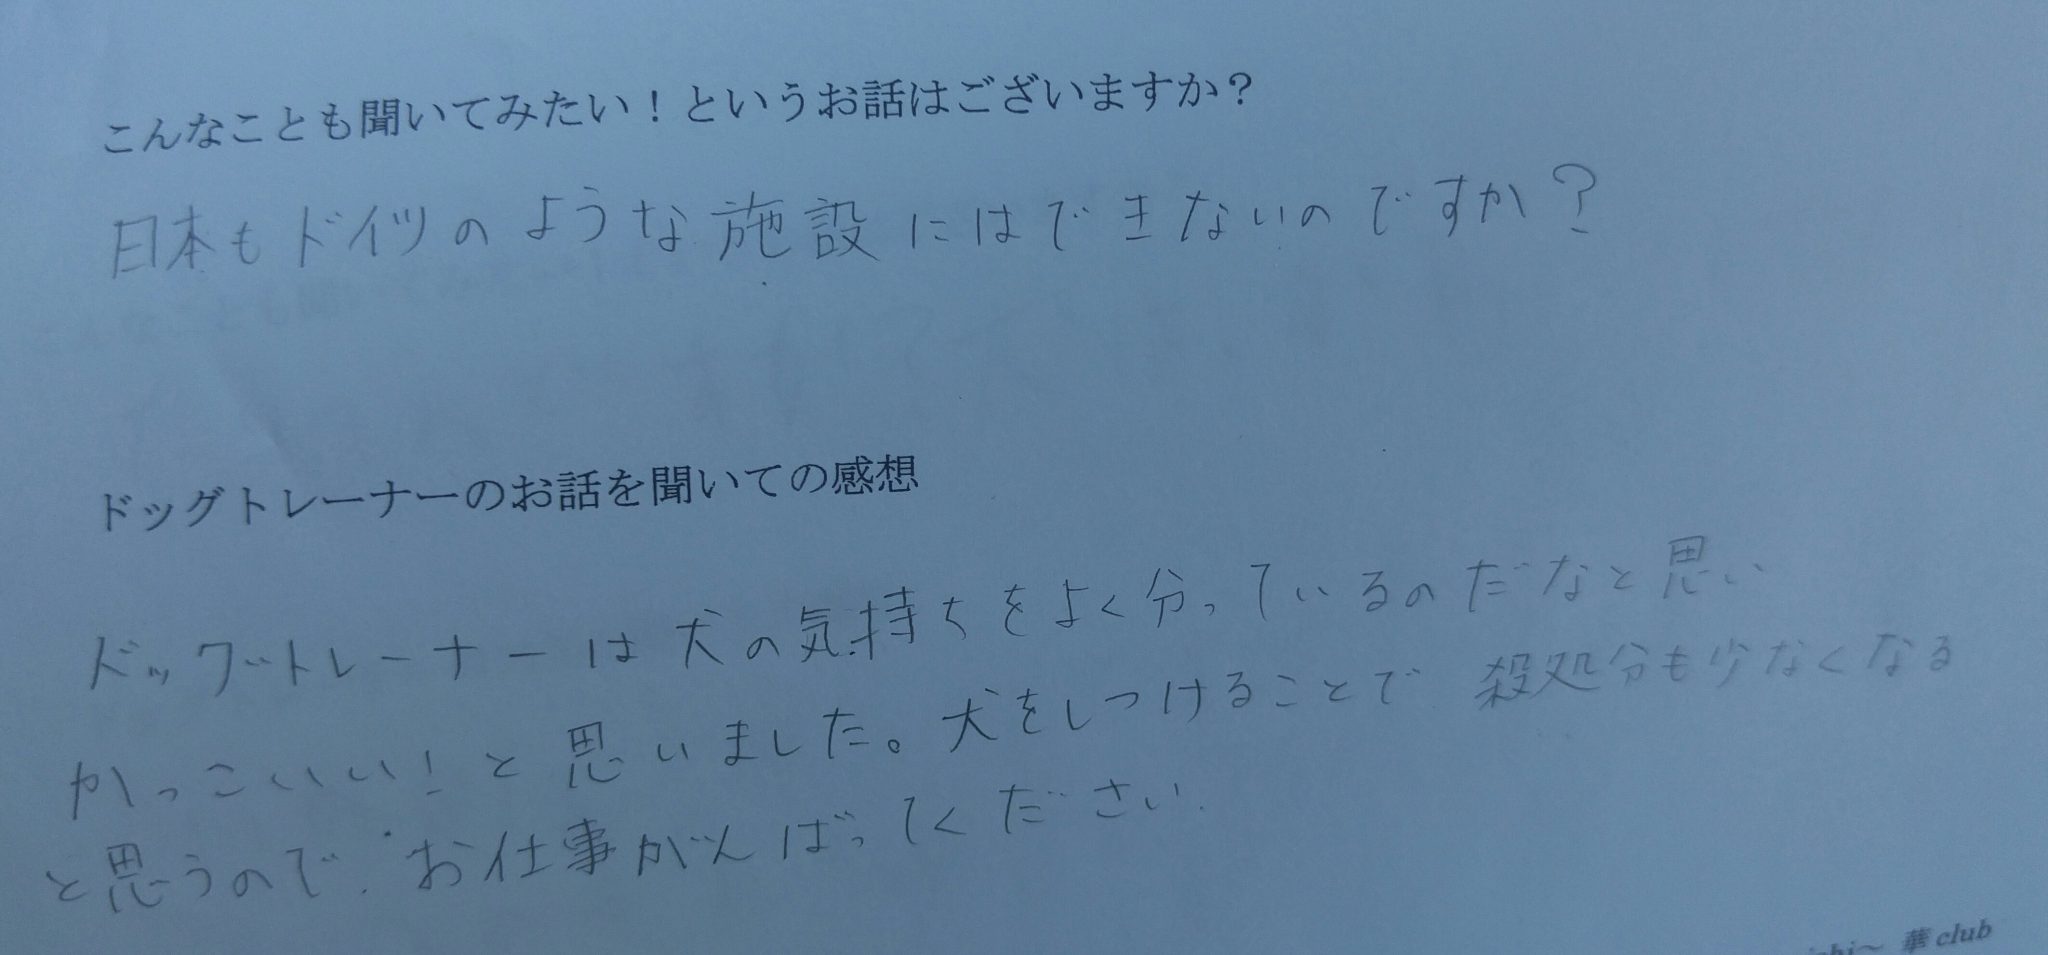 こんなことも聞いてみたい！というお話はございますか？
日本もドイツのような施設にはできないのですか？
ドッグトレーナーのお話を聞いての感想
ドッグトレーナーは犬の気持ちをよく分っているのだなと思い
かっこいい！と思いました。犬をしつけることで殺処分も少なくなる
と思うので、お仕事がんばってください。
華 club